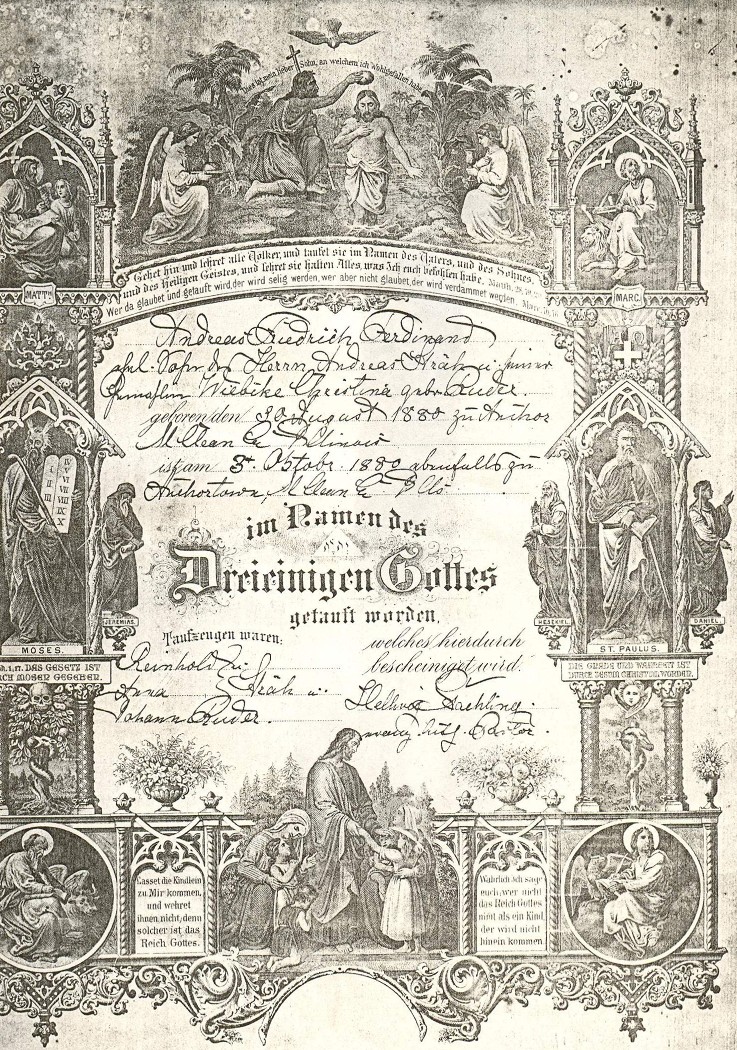 Dies ist mein lieber Sohn, an welchem ich Wohlgefallen habe.
Gehet hin und lehret alle Völker, und taufet sie im Namen des Vaters, und des Sohnes,
und des Heiligen Geistes, und lehret sie halten Alles, was Ich euch befohlen habe. Matth. 28,
Wer da glaubet und getauft wird, der wird selig werden, wer aber nicht glaubet, der wird verdammet werden. Marc. 16, 16
MATTH.
MARC.
Andreas Friedrich Ferdinand
ehel. Sohn des Herrn Andreas Kräh u. seiner
Gemahlin Wiebke Christina geb. Ruder.
geboren den 30 August 1880 zu Anchor
McClean Co Illinois
ist am 3. Octobr. 1880 ebenfalls zu
Anchortown, McClean Co. Ills.
im Namen des
Dreieinigen Gottes
getauft worden,
Taufzeugen waren:
welches hierdurch
bescheiniget wird.
Reinhold
Anna Kräh u.
Johann Ruder.
Pastor.
I
II
III
IV
V
VI
VII
VIII
IX
X
JEREMIAS.
HESEKIEL.
DANIEL.
MOSES.
ST. PAULUS.
DAS GESETZ IST
DURCH MOSEN GEGEBEN.
DIE GNADE UND WAHRHEIT IST
DURCH JESUM CHRISTUM WORDEN.
Lasset die Kindlein
zu Mir kommen,
und wehret
ihnen nicht, denn
solcher ist das
Reich Gottes.
Wahrlich Ich sage
euch, wer nicht
das Reich Gottes
nimt als ein Kind
der wird nicht
hinein kommen